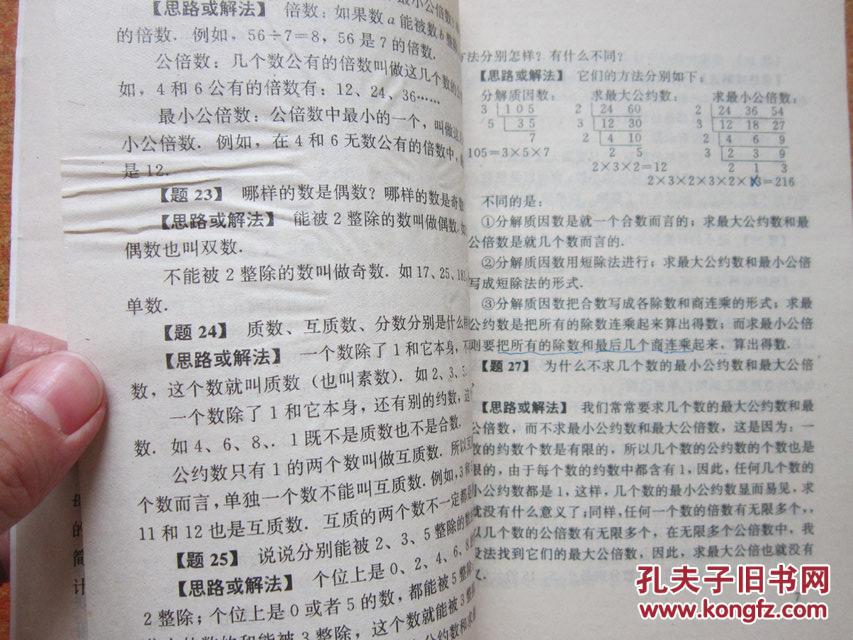 【思路或解法】 倍数：如果数a能被数b整
的倍数. 例如，56÷7=8，56是7的倍数.
公倍数：几个数公有的倍数叫做这几个数的公
如，4和6公有的倍数有：12、24、36……
最小公倍数：公倍数中最小的一个，叫做这
小公倍数. 例如，在4和6无数公有的倍数中，
是12.
【题23】 哪样的数是偶数？哪样的数是奇
【思路或解法】 能被2整除的数叫做偶数.
偶数也叫双数.
不能被2整除的数叫做奇数. 如17、25、
单数.
【题24】 质数、互质数、分数分别是什么
【思路或解法】 一个数除了1和它本身，
数，这个数就叫质数（也叫素数）. 如2、3、5
一个数除了1和它本身，还有别的约数，这
数. 如4、6、8、. 1既不是质数也不是合数.
公约数只有1的两个数叫做互质数. 所以
个数而言，单独一个数不能叫互质数. 例如，3和
11和12也是互质数. 互质的两个数不一定都
【题25】 说说分别能被2、3、5整除的
【思路或解法】 个位上是0、2、4、6、
2整除；个位上是0或者5的数，都能被5整
和能被3整除，这个数就能被3
方法分别怎样？有什么不同？
【思路或解法】 它们的方法分别如下：
分解质因数： 求最大公约数： 求最小公倍数：
3 105 2 24 60 2 24 36 54
5 35 3 12 30 3 12 18 27
7 2 4 10 2 4 6 9
105=3×5×7 2 5 3 2 3 9
2×3×2=12 2 1 3
2×3×2×3×2×1×3=216
不同的是：
①分解质因数是就一个合数而言的；求最大公约数和最
公倍数是就几个数而言的.
②分解质因数用短除法进行；求最大公约数和最小公倍
写成短除法的形式.
③分解质因数把合数写成各除数和商连乘的形式；求最
公约数是把所有的除数连乘起来算出得数；而求最小公倍
则要把所有的除数和最后几个商连乘起来，算出得数.
【题27】 为什么不求几个数的最小公约数和最大公倍
【思路或解法】 我们常常要求几个数的最大公约数和最
公倍数，而不求最小公约数和最大公倍数，这是因为：一
数的约数个数是有限的，所以几个数的公约数的个数也是
限的，由于每个数的约数中都含有1，因此，任何几个数的
小公约数都是1，这样，几个数的最小公约数显而易见，求
就没有什么意义了；同样，任何一个数的倍数有无限多个，，
以几个数的公倍数有无限多个，在无限多个公倍数中，我
没法找到它们的最大公倍数，因此，求最大公倍也就没有
义.
的
简
计
孔夫子旧书网
www.kongfz.com